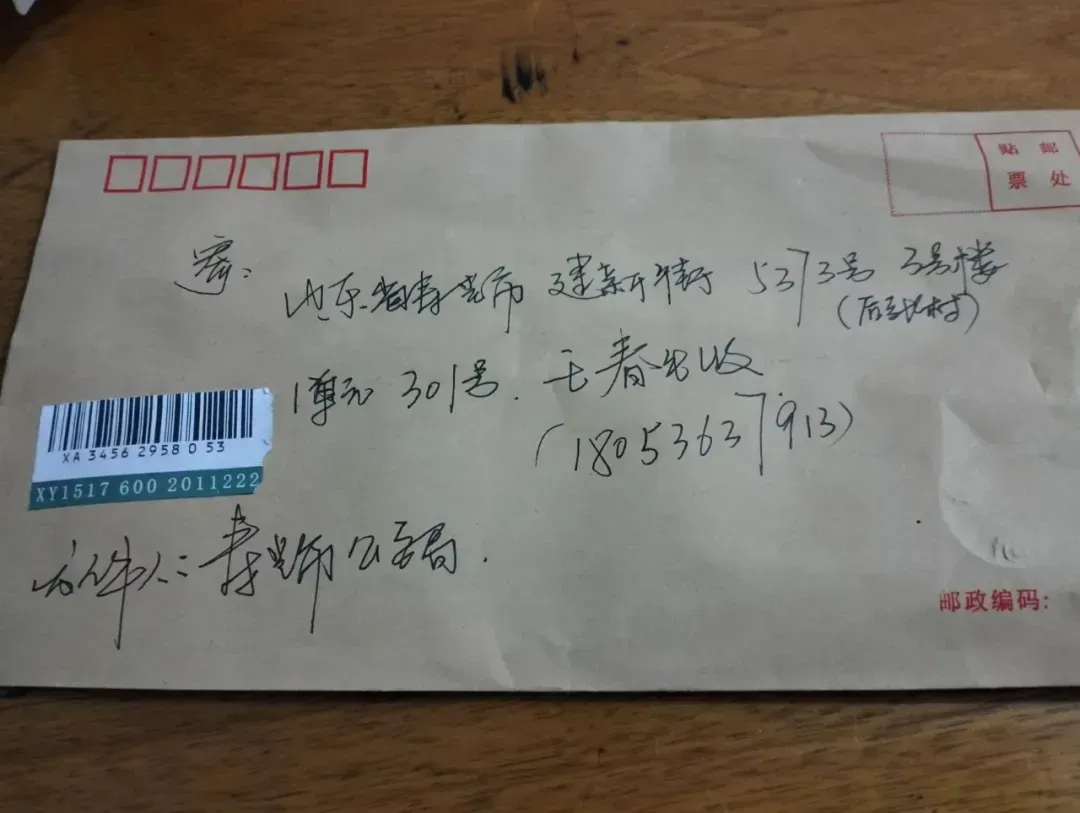 贴 邮
票 处
寄:
山东省寿光市 建新街 5373号 3号楼
(后
村)
1单元 301号. 王春
收
(18053637913)
XA 3456 2958 0 53
XY1517 600 2011222
件人: 寿光市公安局.
邮政编码: